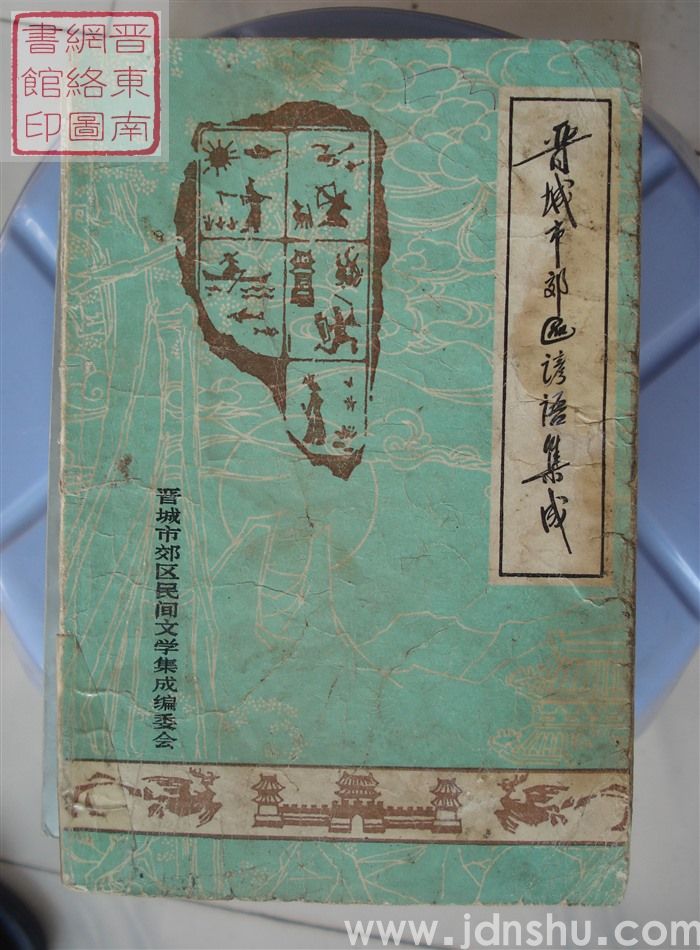 晋東南
網絡圖
書館印
晋城市郊区谚语集成
晋城市郊区民间文学集成编委会
www.jdnshu.com